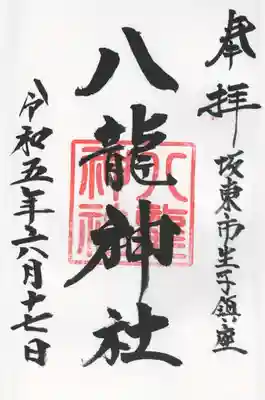 奉拝
坂東市生子鎮座
八龍神社
八龍神社
令和五年六月十七日